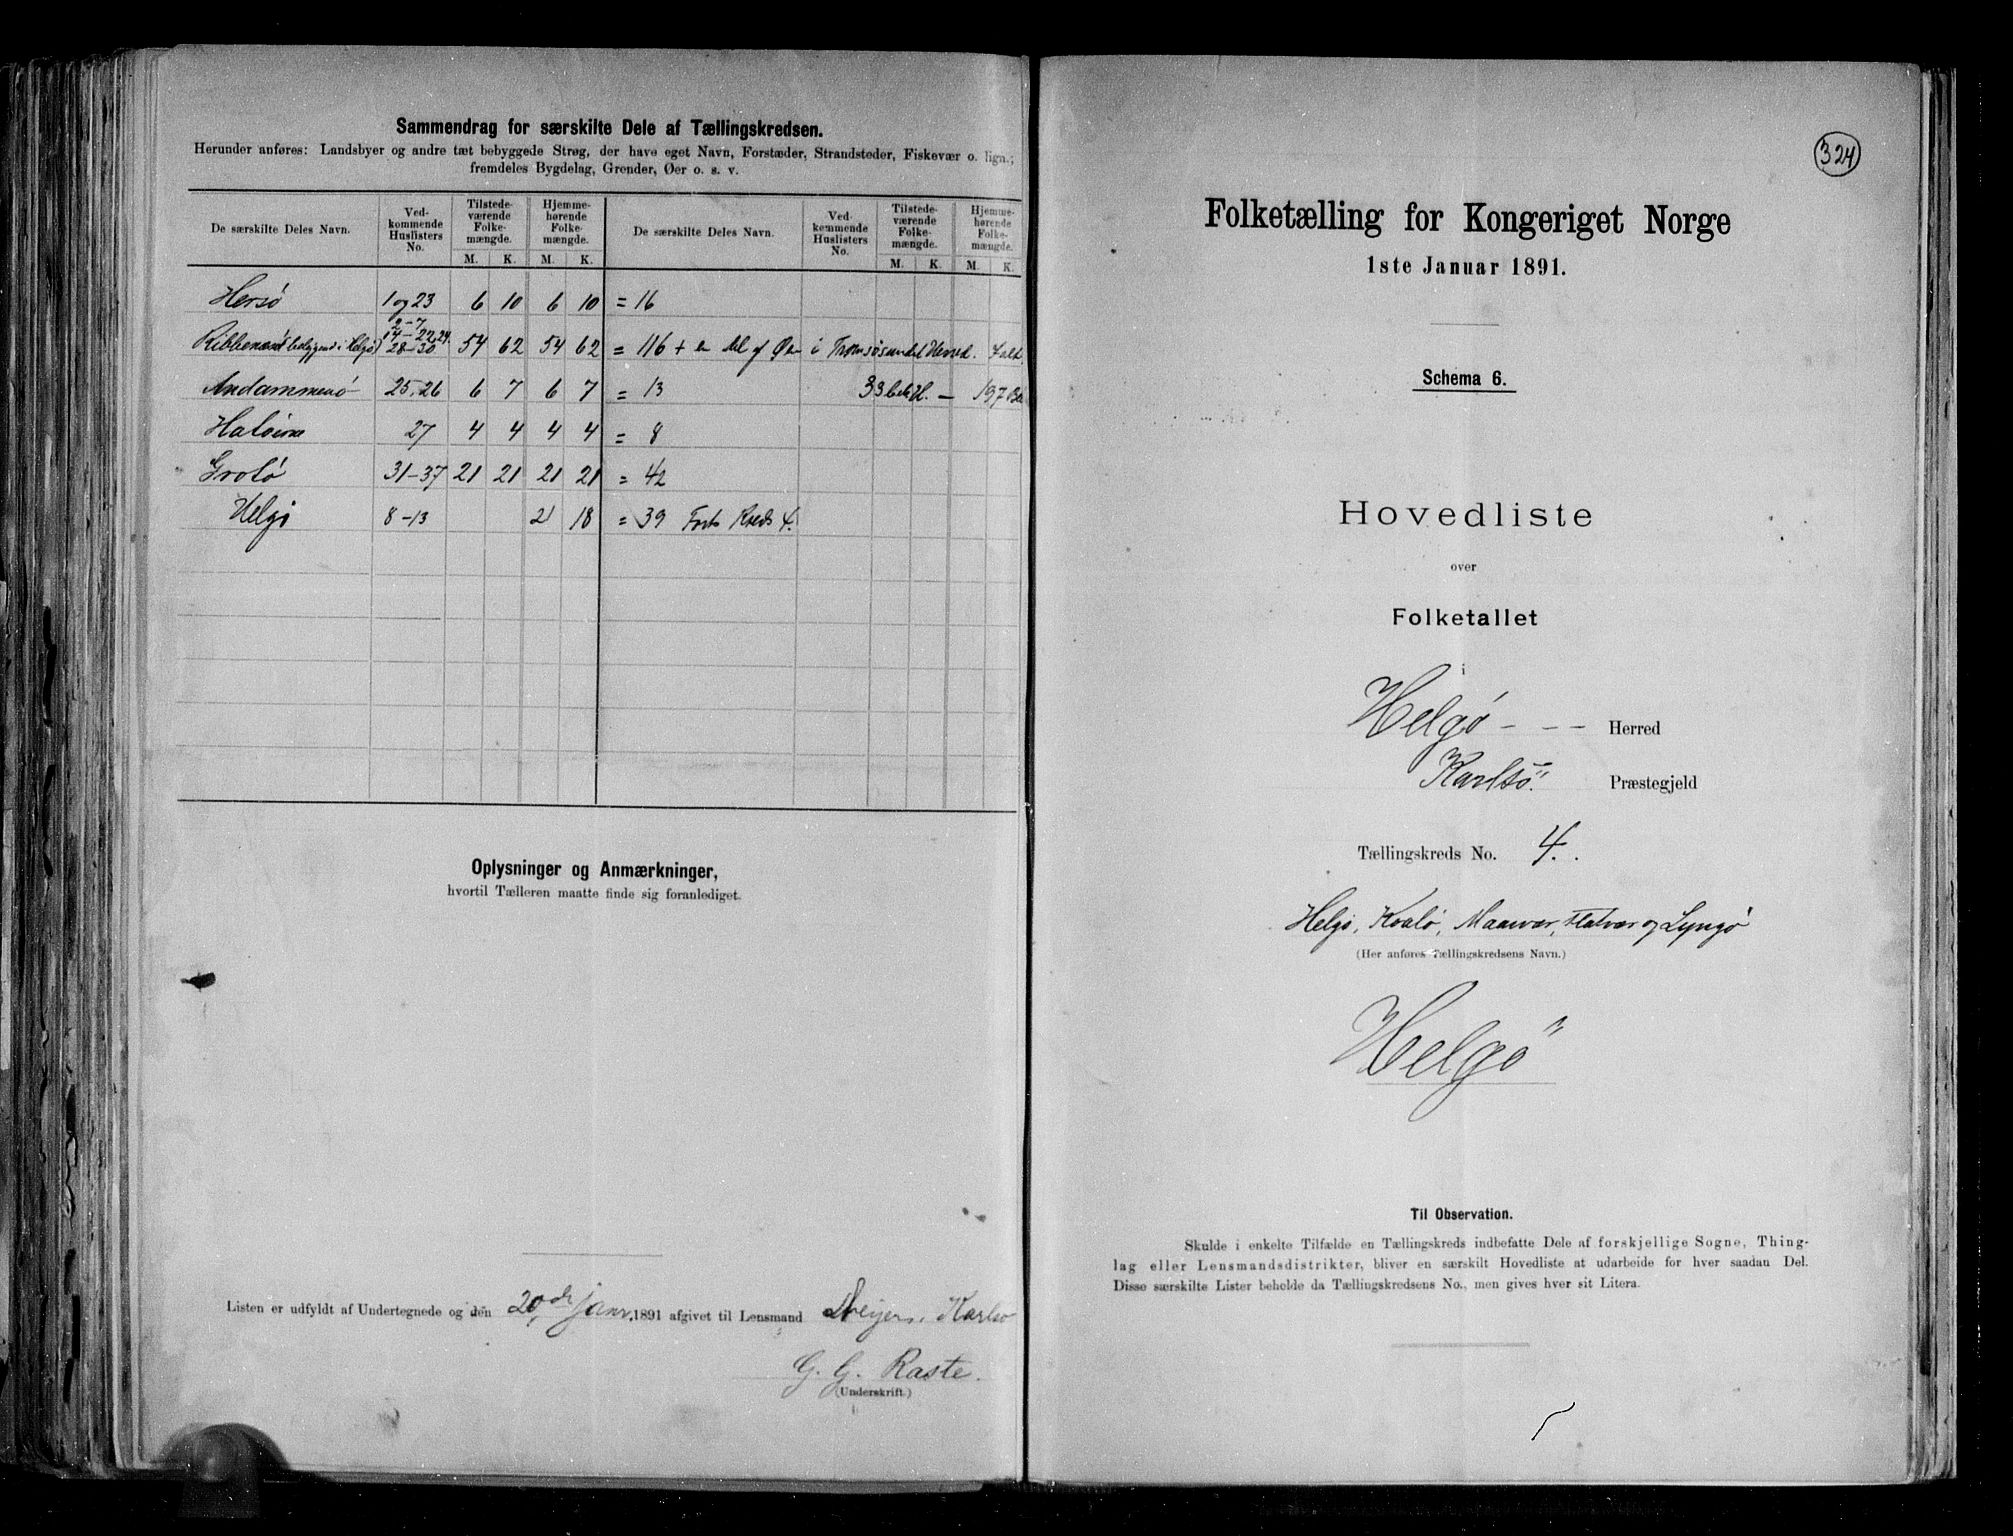 Sammendrag for særskilte Dele af Tællingskredsen.
Herunder anføres: Landsbyer og andre tæt bebyggede Strøg, der have eget Navn, Forstæder, Strandsteder, Fiskevær o. lign.;
fremdeles Bygdelag, Grender, Øer o. s. v.
De særskilte Deles Navn. Vedkommende Huslisters No. Tilstedeværende Folkemængde. Hjemmehørende Folkemængde. De særskilte Deles Navn. Vedkommende Huslisters No. Tilstedeværende Folkemængde. Hjemmehørende Folkemængde.
M. K. M. K. M. K. M. K.
Hersø 1 og 23 6 10 6 10 = 16
2-7
14-22, 24
28-30 54 62 54 62 = 116 + en del af Øen i Tromsøsundet Herred.
25, 26 6 7 6 7 = 13 33 197
27 4 4 4 4 = 8
Grotø 31-37 21 21 21 21 = 42
Helgø 8-13 21 18 = 39 Forts Kreds 4.
Oplysninger og Anmærkninger,
hvortil Tælleren maatte finde sig foranlediget.
Listen er udfyldt af Undertegnede og den 20de janr. 1891 afgivet til Lensmand Dreijer, Karlsø
G. G. Raste.
(Underskrift.)
324
Folketælling for Kongeriget Norge
1ste Januar 1891.
Schema 6.
Hovedliste
over
Folketallet
i
Helgø - - - Herred
Karlsø. Præstegjeld
Tællingskreds No. 4.
Helgø, Kvalø, Maasvær, Flatvær og Lyngø
(Her anføres Tællingskredsens Navn.)
Helgø
Til Observation.
Skulde i enkelte Tilfælde en Tællingskreds indbefatte Dele af forskjellige Sogne, Thing-
lag eller Lensmandsdistrikter, bliver en særskilt Hovedliste at udarbeide for hver saadan Del.
Disse særskilte Lister beholde da Tællingskredsens No., men gives hver sit Litera.